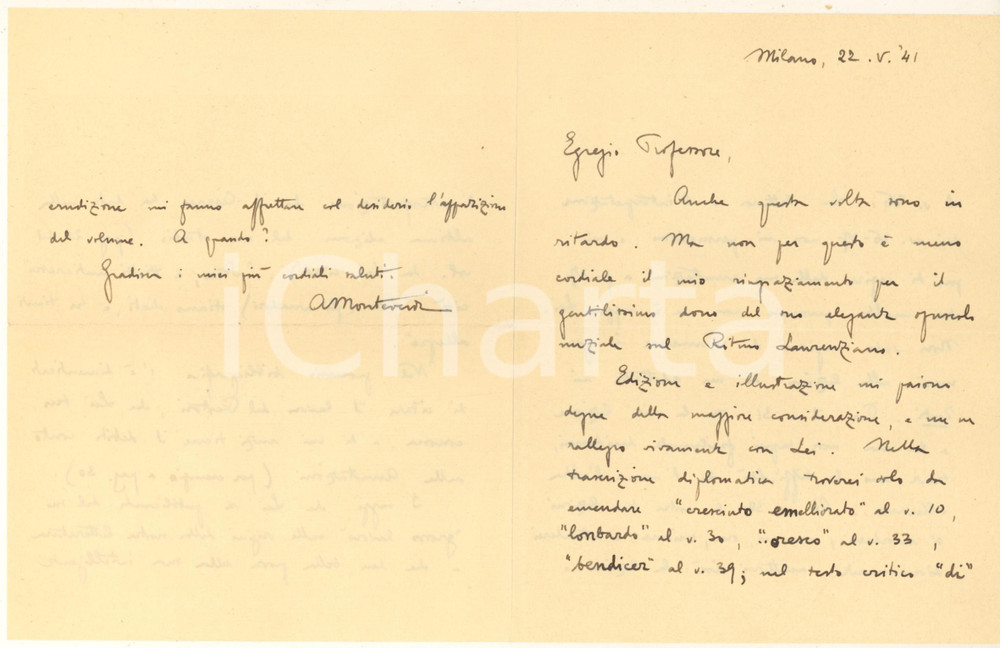 Milano, 22.V.'41
Egregio Professore,
Anche questa volta sono in
ritardo. Ma non per questo è meno
cordiale il mio ringraziamento per il
gentilissimo dono del suo elegante opuscolo
nuziale sul Ritmo Laurenziano.
Edizione e illustrazione mi paiono
degne della maggiore considerazione, e me ne
rallegro vivamente con Lei. Nella
trascrizione diplomatica troverei solo da
emendare "cresciuto emelliorato" al v. 10,
"lombardo" al v. 30, "cresco" al v. 33,
"bendicer" al v. 39; nel testo critico "di"
erudizione mi fanno affrettare col desiderio l'apparizione
del volume. A quando?
Gradisca i miei più cordiali saluti.
AMonteverdi
iCharta